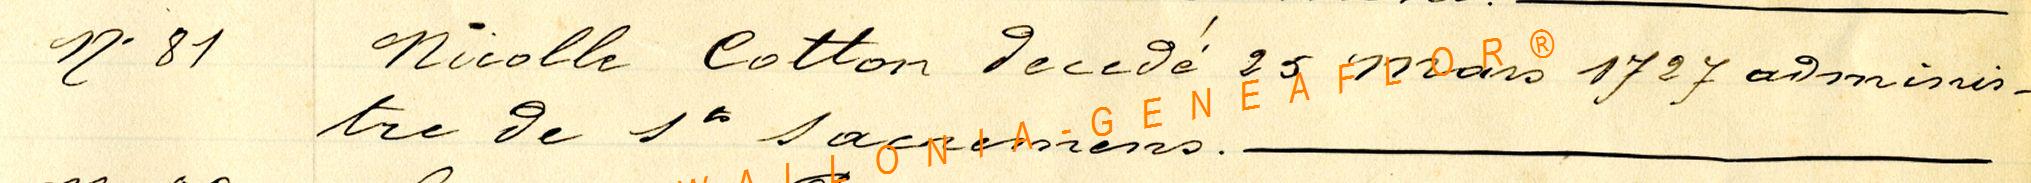 N° 81 Nicolle Cotton decedé 25 Mars 1727 adminis-
tre de Sts Sacremens.
WALLONIA-GENEAFLOR®